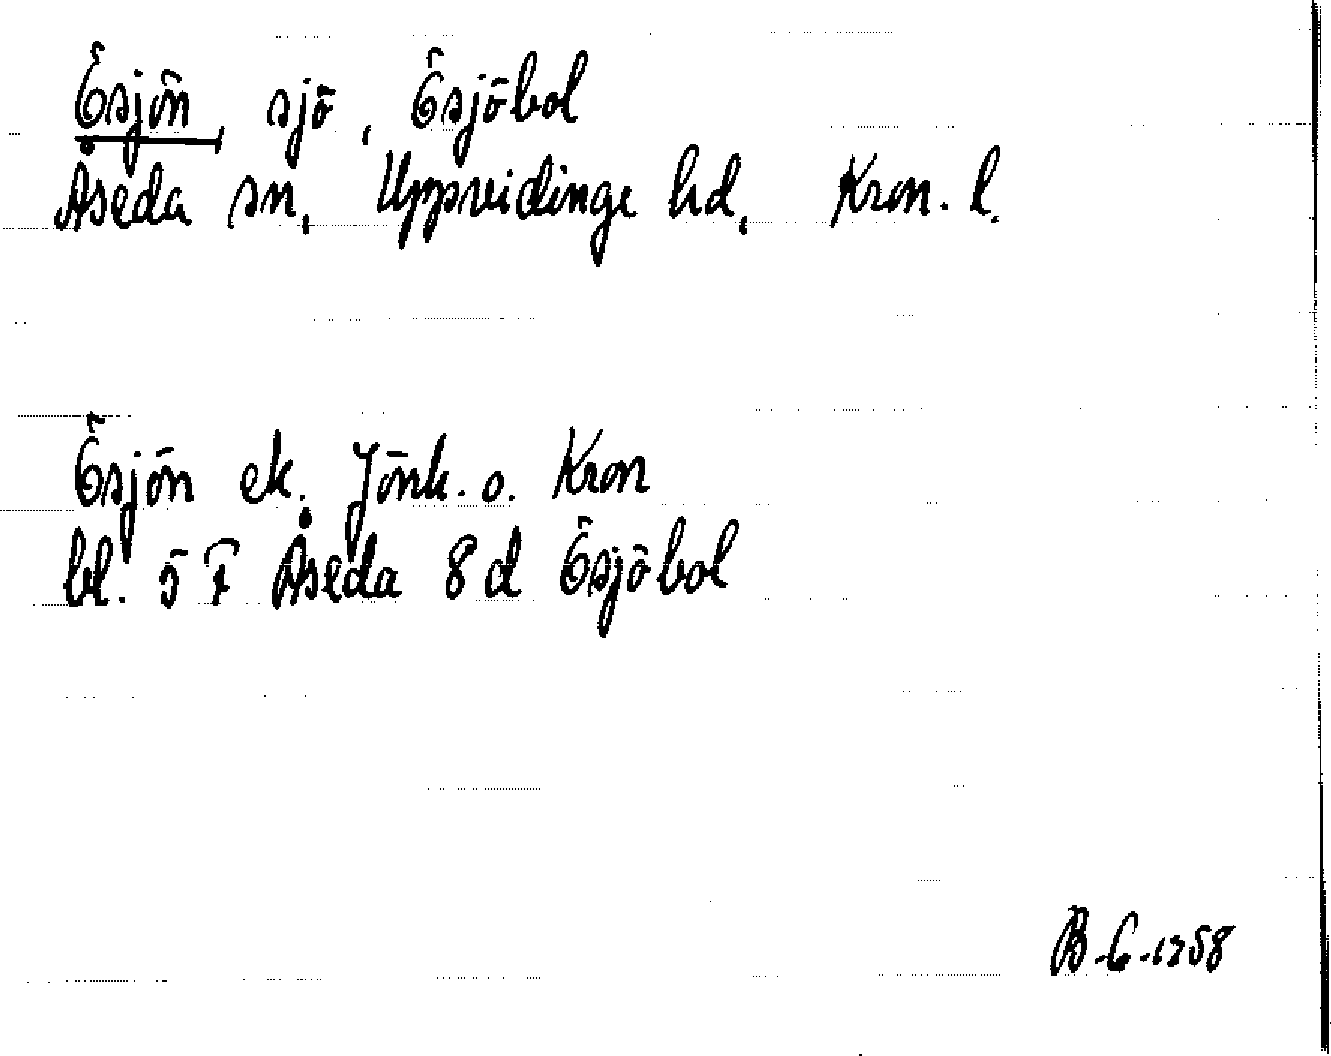 Ösjön, sjö, Ösjöbol
Åseda sn, Uppvidinge hd, Kron. l.
Ösjön ek. Jönk. o. Kron
bl. 5 F Åseda 8 d Ösjöbol
B-G-1958